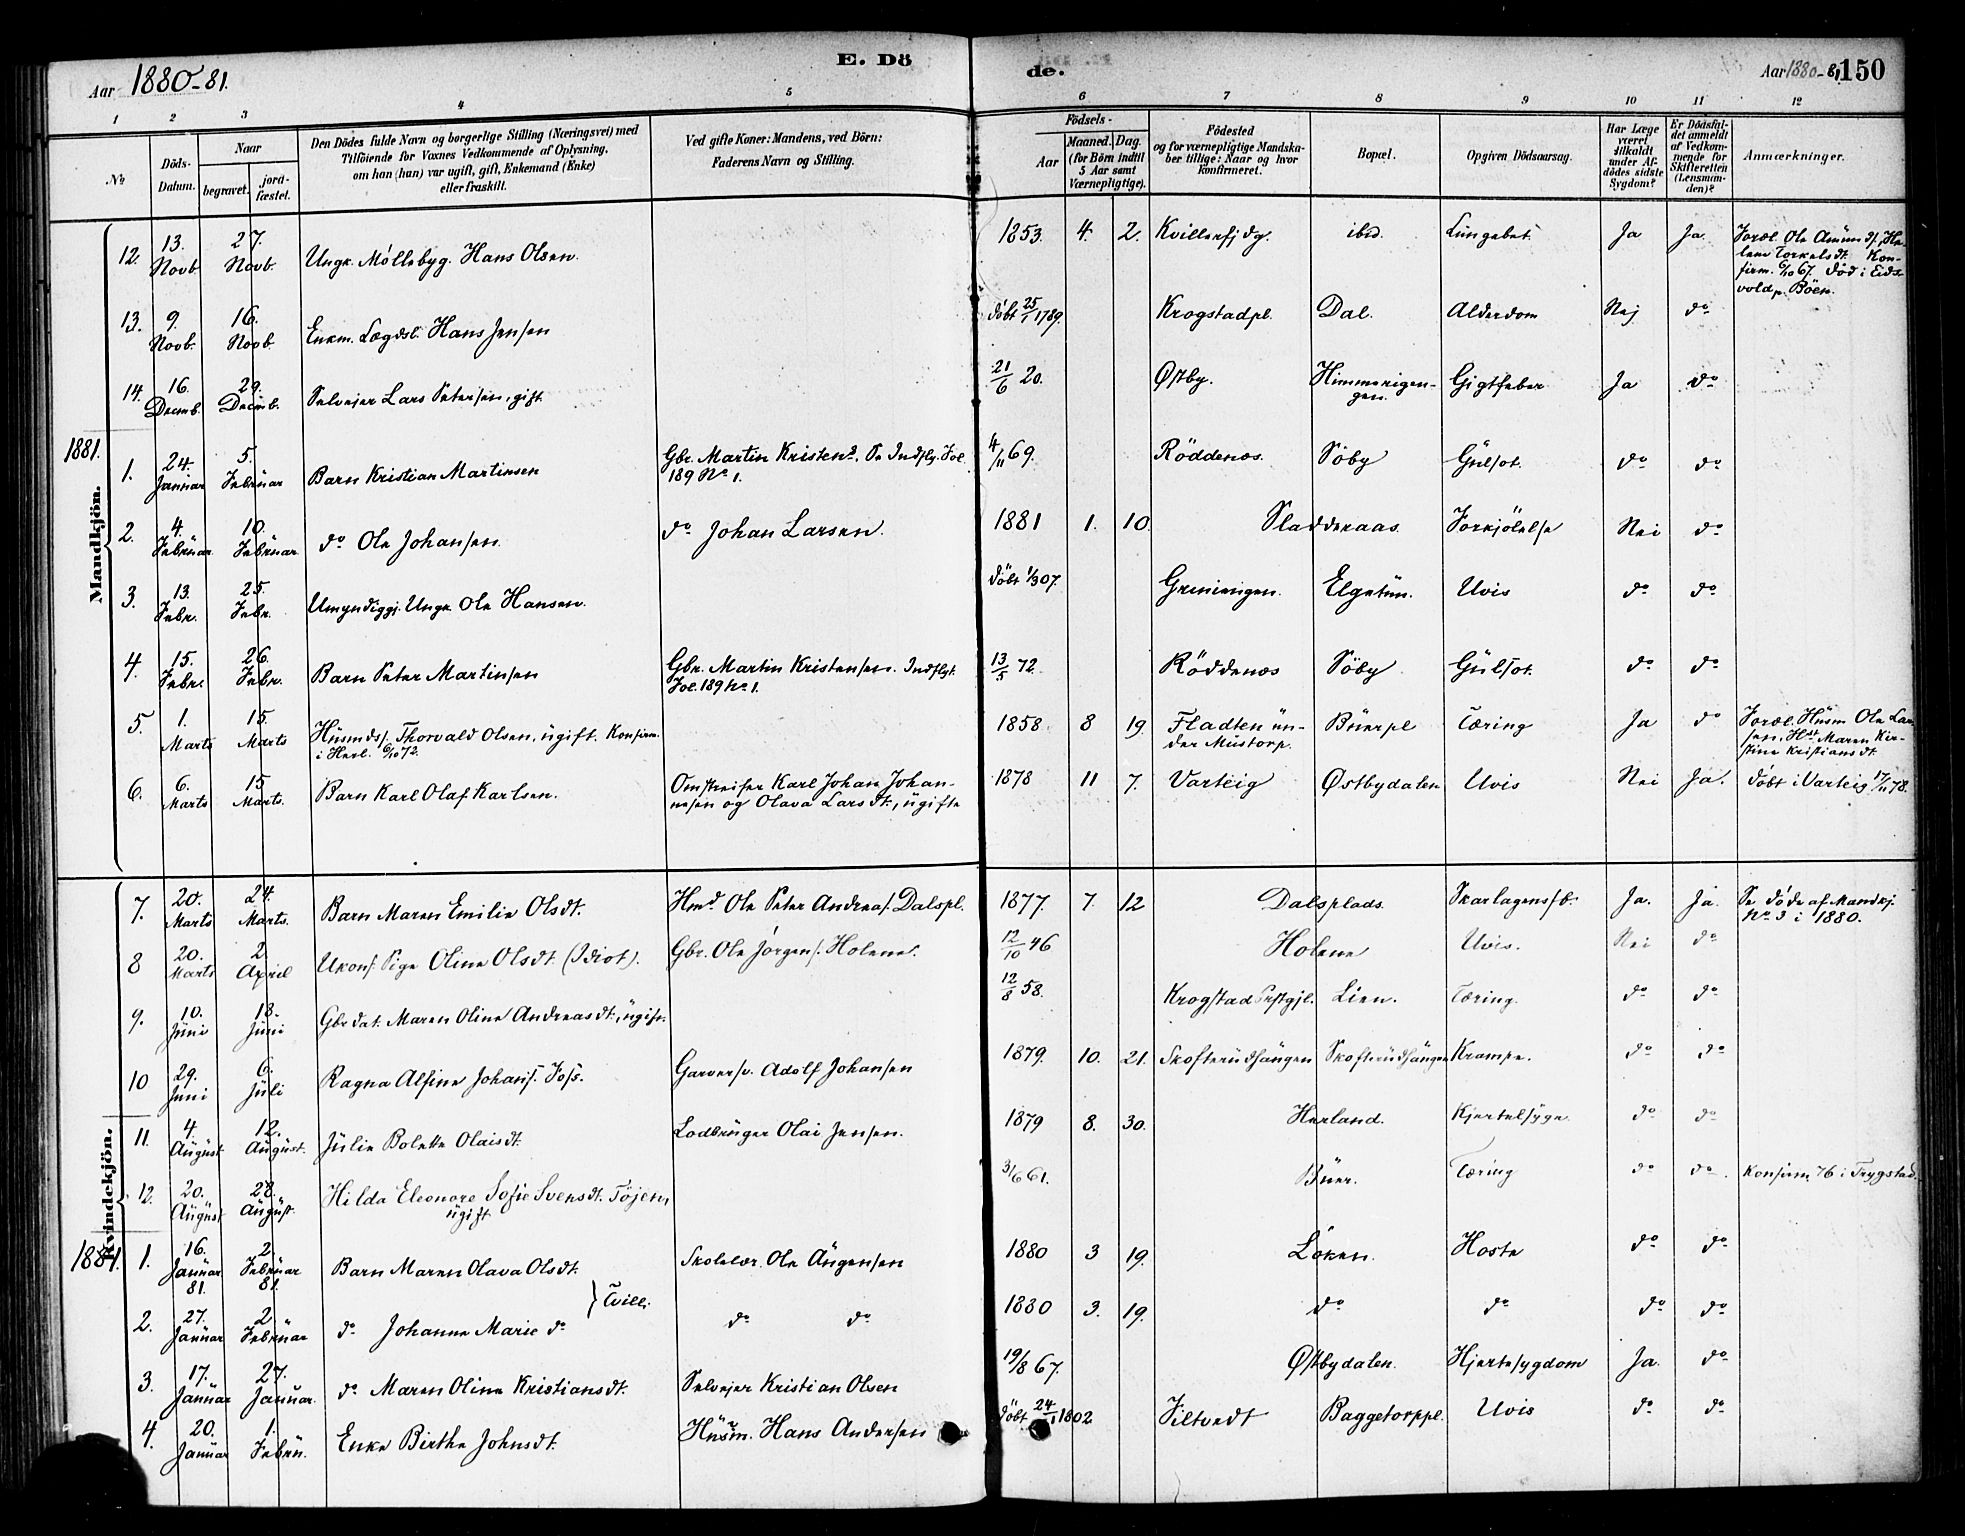 Aar 1880-81.
E. Dö
de.
Aar 1880-81 150
1 2 3 4 5 6 7 8 9 10 11 12
No
Döds-Datum.
Naar
begravet.
jord-fæstet.
Den Dödes fulde Navn og borgerlige Stilling (Næringsvei) med
Tilföiende for Voxnes Vedkommende af Oplysning,
om han (hun) var ugift, gift, Enkemand (Enke)
eller fraskilt.
Ved gifte Koner: Mandens, ved Börn:
Faderens Navn og Stilling.
Födsels-
Aar
Maaned. Dag.
(for Börn indtil
5 Aar samt
Værnepligtige).
Födested
og for værnepligtige Mandska-
ber tillige: Naar og hvor
konfirmeret.
Bopæl.
Opgiven Dödsaarsag.
Har Læge
været
tilkaldt
under Af-
dödes sidste
Sygdom?
Er Dödsfal-
det anmeldt
af Vedkom-
mende for
Skifteretten
(Lensman-
den)?
Anmærkninger.
Mandkjön.
12. 13. Novb. 27. Novb. Ungk. Møllebyg. Hans Olsen. 1853. 4. 2. ibid. Ja Ja
Foræl. Ole Amunds., He-
lene Torkelsdt. Kon-
firm. 6/10 67. Död i Eids-
vold p. Böen.
13. 9. Novb. 16. Novb. Enkm. Lægdsl. Hans Jensen döbt 25/1 1789. Krogstadpl. Dal. Alderdom Nej do
14. 16. Decmb. 29. Decmb. Selvejer Lars Petersen, gift. 21/6 20. Østby. Himmerigen-
gen. Gigtfeber Ja do
1881.
1. 24. Januar 5. Februar Barn Kristian Martinsen Gbr. Martin Kristens. Se Indflg. Fol.
189 No 1. 4/11 69. Röddenes. Söby Gulsot. do do
2. 4. Februar 10. Februar do Ole Johansen. do Johan Larsen. 1881 1. 10. Sladderaas. Forkjölelse Nei do
3. 13. Febr. 25. Febr. Umyndiggj. Ungk. Ole Hansen. döbt 1/3 07. Greningen. Elgetun. Uvis do do
4. 15. Febr. 26. Febr. Barn Peter Martinsen Gbr. Martin Kristensen. Indflgt.
Fol. 189 No 1. 13/5 72. Röddenes Söby Gulsot. do do
5. 1. Marts 15. Marts Husmds. Thorvald Olsen, ugift. Konfirm.
i Herl. 6/10 72. 1858 8 19. Fladten un-
der Mustorp. Buerpl Tæring Ja do
Foræl. Husm Ole Lar-
sen, Hst. Maren Kir-
stine Kristiansdt.
6. 6. Marts 15 Marts. Barn Karl Olaf Karlsen. Omstreifer Karl Johan Johan-
nesen og Olava Larsdt., ugifte 1878 11 7. Varteig Østbydalen Uvis Nei Ja. döbt i Varteig 17/11 78.
Kvindekjön.
7. 20. Marts 24. Marts. Barn Maren Emilie Olsdt. Hmd Ole Peter Andreas. Dalspl. 1877. 7. 12 Dalsplads. Skarlagensfb. Ja. Ja. Se döde af Mandkj.
No 3 i 1880.
8 20. Marts 2. April Ukonf. Pige Oline Olsdt. (Idiot). Gbr. Ole Jörgens. Holene. 12/10 46 Holene Uvis. Nei do
9. 10. Juni 18. Juni Gbrdat. Maren Oline Andreasdt., ugift. 12/8 58. Krogstad Prstgjl. Lien. Tæring. do do
10 29. Juni 6. Juli Ragna Alfine Johans. Garversv. Adolf Johansen 1879. 10. 21. Skofterudhangen Skofterudhangen Krampe. do do
11. 4. August 12. August. Julie Bolette Olaisdt. Lodbruger Olai Jensen. 1879 8. 30. Herland. Kjertelsyge do do
12. 20. August 28. August. Hilda Eleonore Sofie Svensdt. Töjen,
ugift 3/6 61. Buer. Tæring do do. Konfirm. 76 i Trygstad.
1881.
1. 16. Januar 81. 2. Februar 81. Barn Maren Olava Olsdt. Skolelær. Ole Augensen 1880 3 19. Löken. Hoste do do
} Tvill.
2. 27. Januar 2. Februar do Johanne Marie do do do 1880 3. 19. do do do do
3. 17. Januar 27. Januar. do Maren Oline Kristiansdt. Selvejer Kristian Olsen 19/8 67. Østbydalen. Hjertesygdom Ja. do
4. 20. Januar 1. Febru. Enke Birthe Johnsdt. Husm. Hans Andersen döbt 24/1 1802 Filtvedt Baggetorppl. Uvis do do